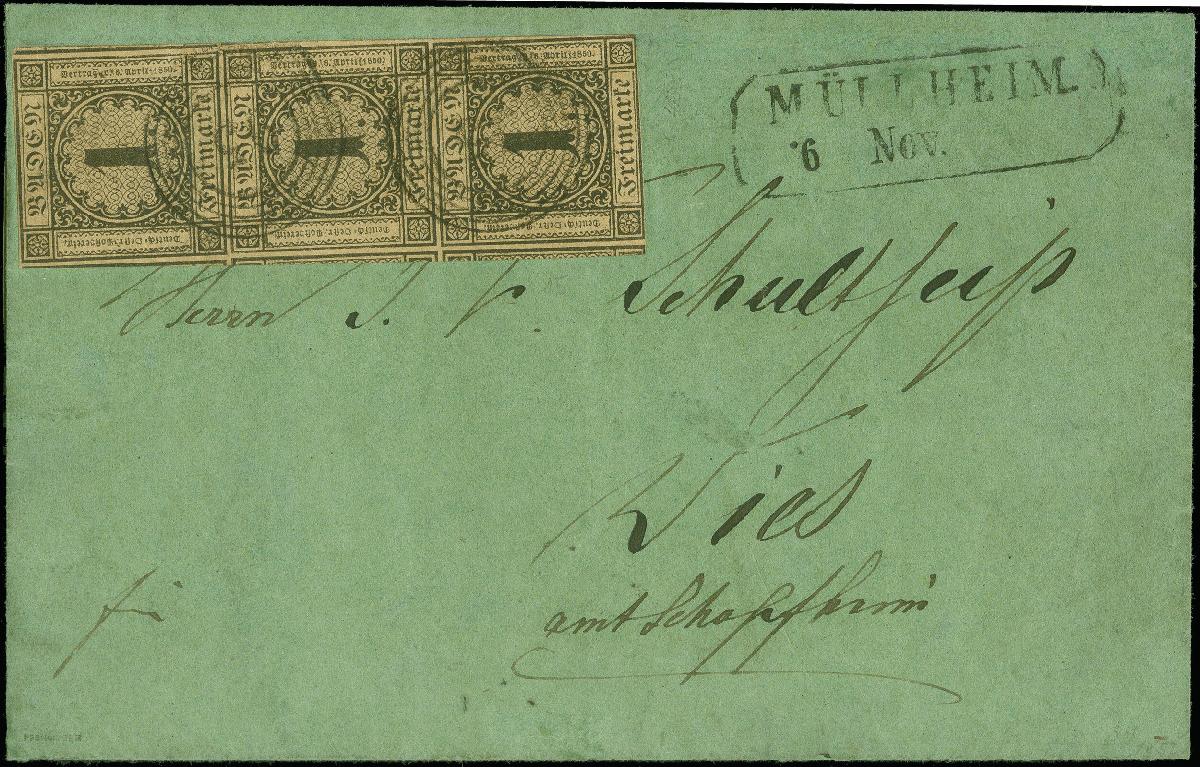 Vertrag v. 6. April 1850.
BADEN 1. Freimarke
Deutsch-Oestr. Postverein.
Vertrag v. 6. April 1850.
BADEN 1. Freimarke
Deutsch-Oestr. Postverein.
Vertrag v. 6. April 1850.
BADEN 1. Freimarke
Deutsch-Oestr. Postverein.
MÜLLHEIM.
6 Nov.
Herrn J. V. Schultheiß
Wies
amt Schopfheim